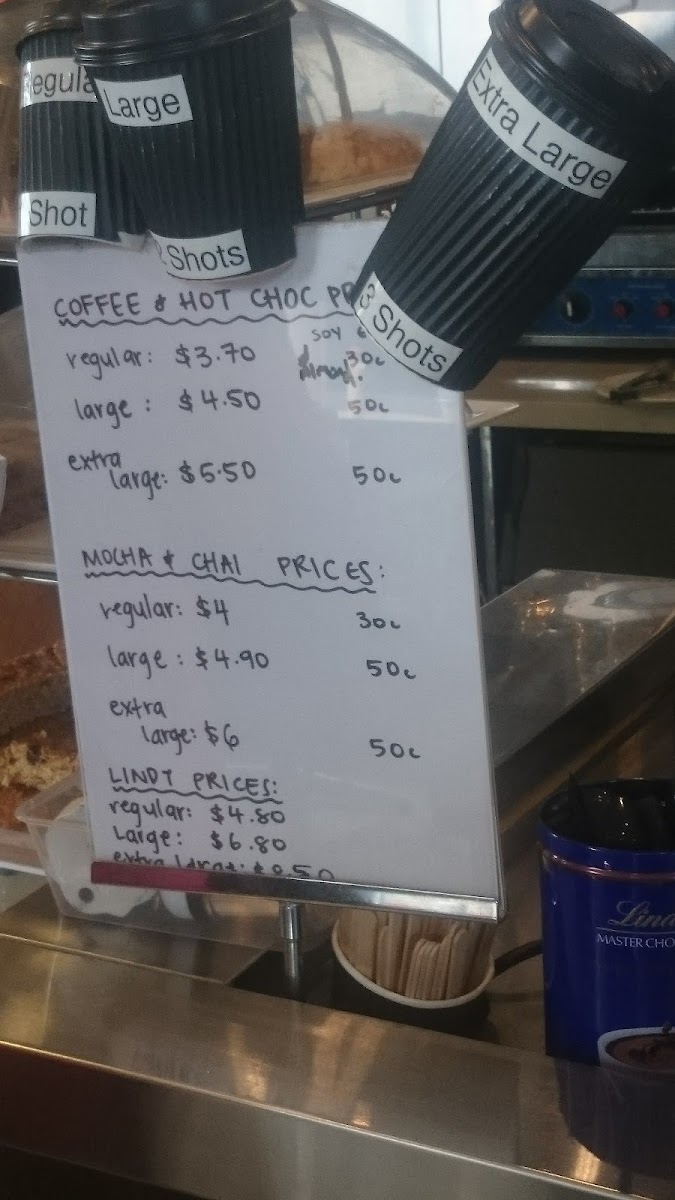 Regula
Large
Extra Large
Shot
Shots
3 Shots
COFFEE & HOT CHOC PR
SOY
regular: $3.70 30c
almond.
large: $4.50 50c
extra
large: $5.50 50c
MOCHA & CHAI PRICES:
regular: $4 30c
large: $4.90 50c
extra
large: $6 50c
LINDT PRICES:
regular: $4.80
Large: $6.80
extra large: $8.50
Lind
MASTER CHO